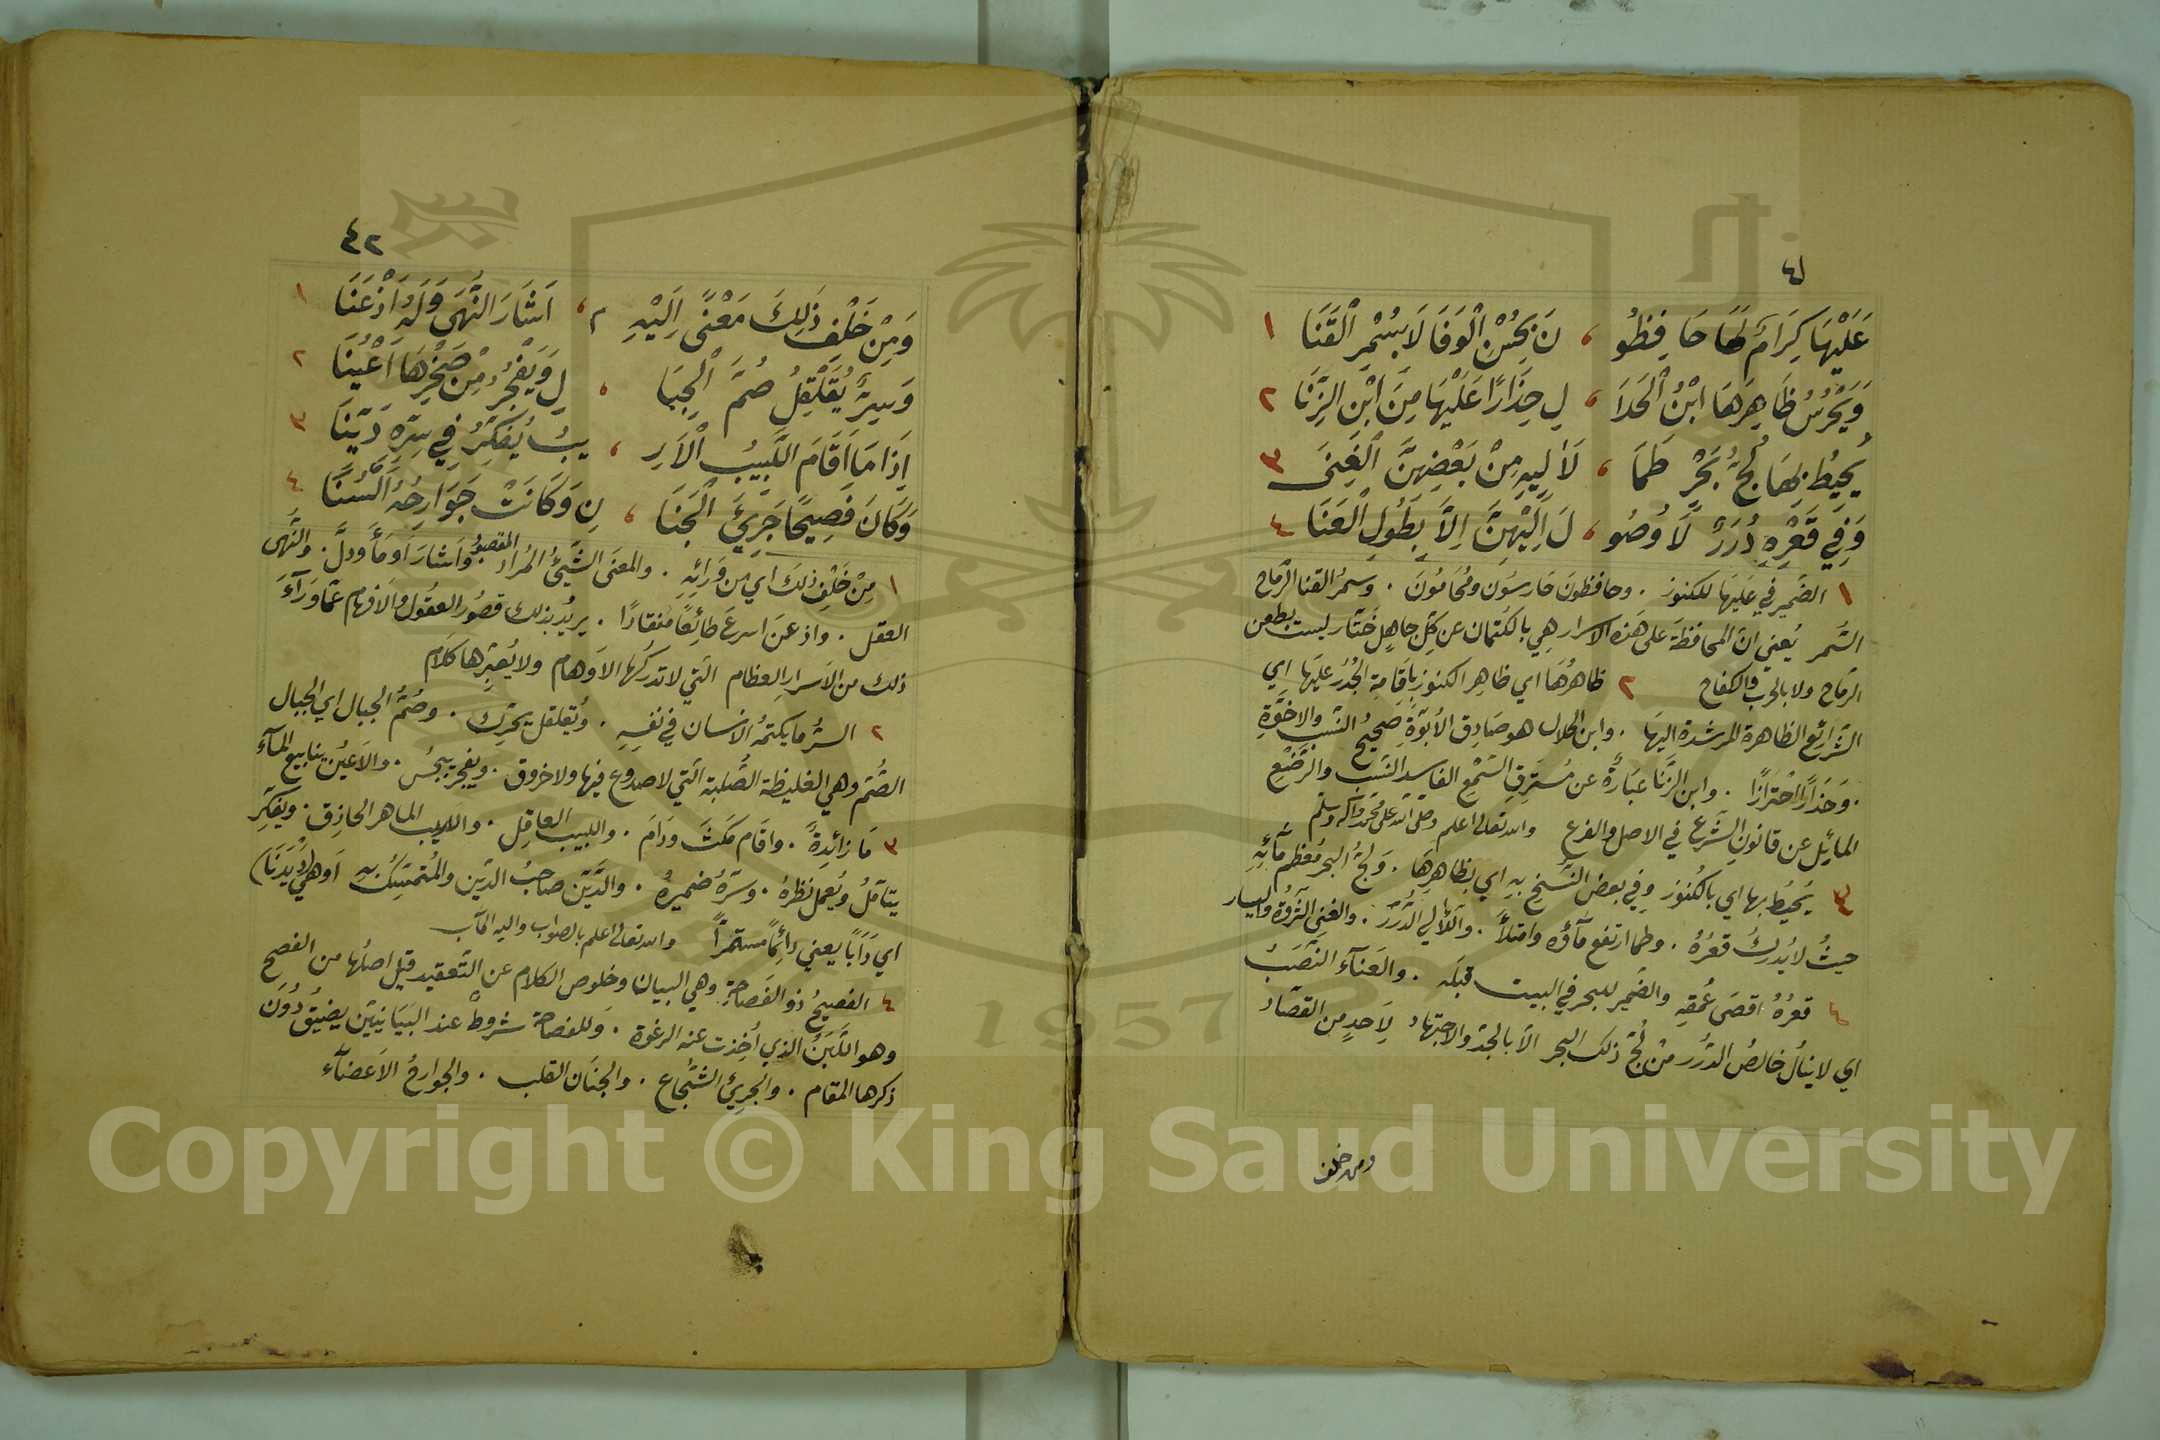 ٤١
عَلَيْهَا كِرَامٌ لَهَا حَافِظُو ، نَ بِحُسْنِ الْوَفَا لَا بِسُمْرِ الْقَنَا ١
وَيَحْرُسُ ظَاهِرَهَا ابْنُ الْحَلَا ، لِ حِذَارًا عَلَيْهَا مِنَ ابْنِ الزِّنَا ٢
يُحِيطُ بِهَا لُجُّ بَحْرٍ طَمَا ، لَآلِيهِ مِنْ بَعْضِهِنَّ الْغِنَى ٣
وَفِي قَعْرِهِ دُرَرٌ لَا وُصُو ، لَ إِلَيْهِنَّ إِلَّا بِطُولِ الْعَنَا ٤
١ الضمير في عَلَيهَا للكنوز . وحافظون حَارسُون ومُحَامُونَ . وَسمرُ القنا الرّماح
السُّمر يُعني انّ المحافظة على هَذه الاسرار هِي بالكتمان عن كلّ جاهلٍ خَتّار ليست بطعن
الرّماح ولا بالحرب والكفاح ٢ ظاهرُهَا اي ظاهِر الكنوز بِاقَامةِ الجُدُر عليَها اي
الشّرائع الظاهرة المرشدة اليهَا . وابن الحلال هو صَادِق الأبوّةِ صحيحُ النسّب والاخوّةِ
. وَحذَارًا احْترَازًا . وابن الزّنا عبَارَةٌ عن مُسترِقِ السّمعِ الفاسِد النّسَب والرّضْعِ
المائِل عن قانونِ الشّرع في الاصل والفرع والله تعالى اعلم وصلّى الله على محمّد وآله وسلّم
٣ يُحيطُ بها اي بالكنوز وفي بعض النّسخ بهِ اي بظاهرِهَا . وَلجُّ البحر مُعظم مآئِهِ
حيثُ لا يُدركُ قعرُهُ . وطما ارتفع مآؤه وامتلأَ . واللآلي الدُّرَرُ . والغِنى الثّروة واليسار
٤ قعرُهُ اقصَى عُمقِهِ والضمير للبحر في البيت قبلَه . والعَنآء النّصَبُ
اي لا ينالُ خالصُ الدُّرر منْ لُجِّ ذلك البحر الاّ بالجدّ والاجتهاد لِاَحدٍ من القصّاد
ومن خلف
٤٢
وَمِنْ خَلْفِ ذَلِكَ مَعْنًى إِلَيْهِ ، أَشَارَ النُّهَى وَلَهُ أَذْعَنَا ١
وَسِرٌّ يُقَلْقِلُ صُمَّ الْجِبَا ، لِ وَيَفْجُرُ مِنْ صَخْرِهَا أَعْيُنَا ٢
إِذَا مَا أَقَامَ اللَّبِيبُ الْأَرِ ، يبُ يُفَكِّرُ فِي سِرِّهِ دَيِّنَا ٣
وَكَانَ فَصِيحًا جَرِيَّ الْجَنَا ، نِ وَكَانَتْ جَوَارِحُهُ أَلْسُنَا ٤
١ مِنْ خَلْفِ ذلكَ اي من وَرائِهِ . والمعنَى الشّيئُ المُراد المقصودُ وَاَشارَ اَومَأ وَدلَّ . والنُّهَى
العقل . واذعنَ اسرعَ طائِعًا مُنقادًا . يريدُ بذلك قصُور العقول والافهام عمّا ورَآءَ
ذلك من الاَسرارِ العظام الّتي لا تدركُها الاَوهام ولا يُعبّرها كلَام
٢ السرُّ ما يكتمهُ الانسان في نفسِهِ . ويُقلقل يحرّك . وصُمُّ الجبال اي الجبال
الصُّم وهي الغليظة الصُّلبة الّتي لا صدوع فيها ولا خروق . ويفجر يبجُس . والاَعيُن ينابيع المآء
٣ مَا زائدةٌ . واقَام مَكثَ ودَامَ . واللبيب العاقِل . والاريب الماهر الحاذِق . ويفكّر
يتأمّلُ ويُعملُ نظرهُ . وسرّهُ ضميرهُ . والدَّيّن صاحبُ الدّين والمُتمسّكُ بهِ اَو هي (دَيْدَنَا)
اي دَابًا يعني دائمًا مستمرًّا والله تعالى اعلم بالصواب واليه المآب
٤ الفصيحُ ذو الفصَاحةِ وهي البيان وخلوص الكلام عن التّعقيد قيل اصلُها من الفصح
وهو اللّبَنُ الذي اُخذت عنه الرغوة . وللفصَاحَة شروطٌ عند البيَانيّين يضيقُ دُونَ
ذكرها المقام . والجريئُ الشّجاع . والجنَان القلب . والجوارحُ الاَعضآء
1957
Copyright © King Saud University